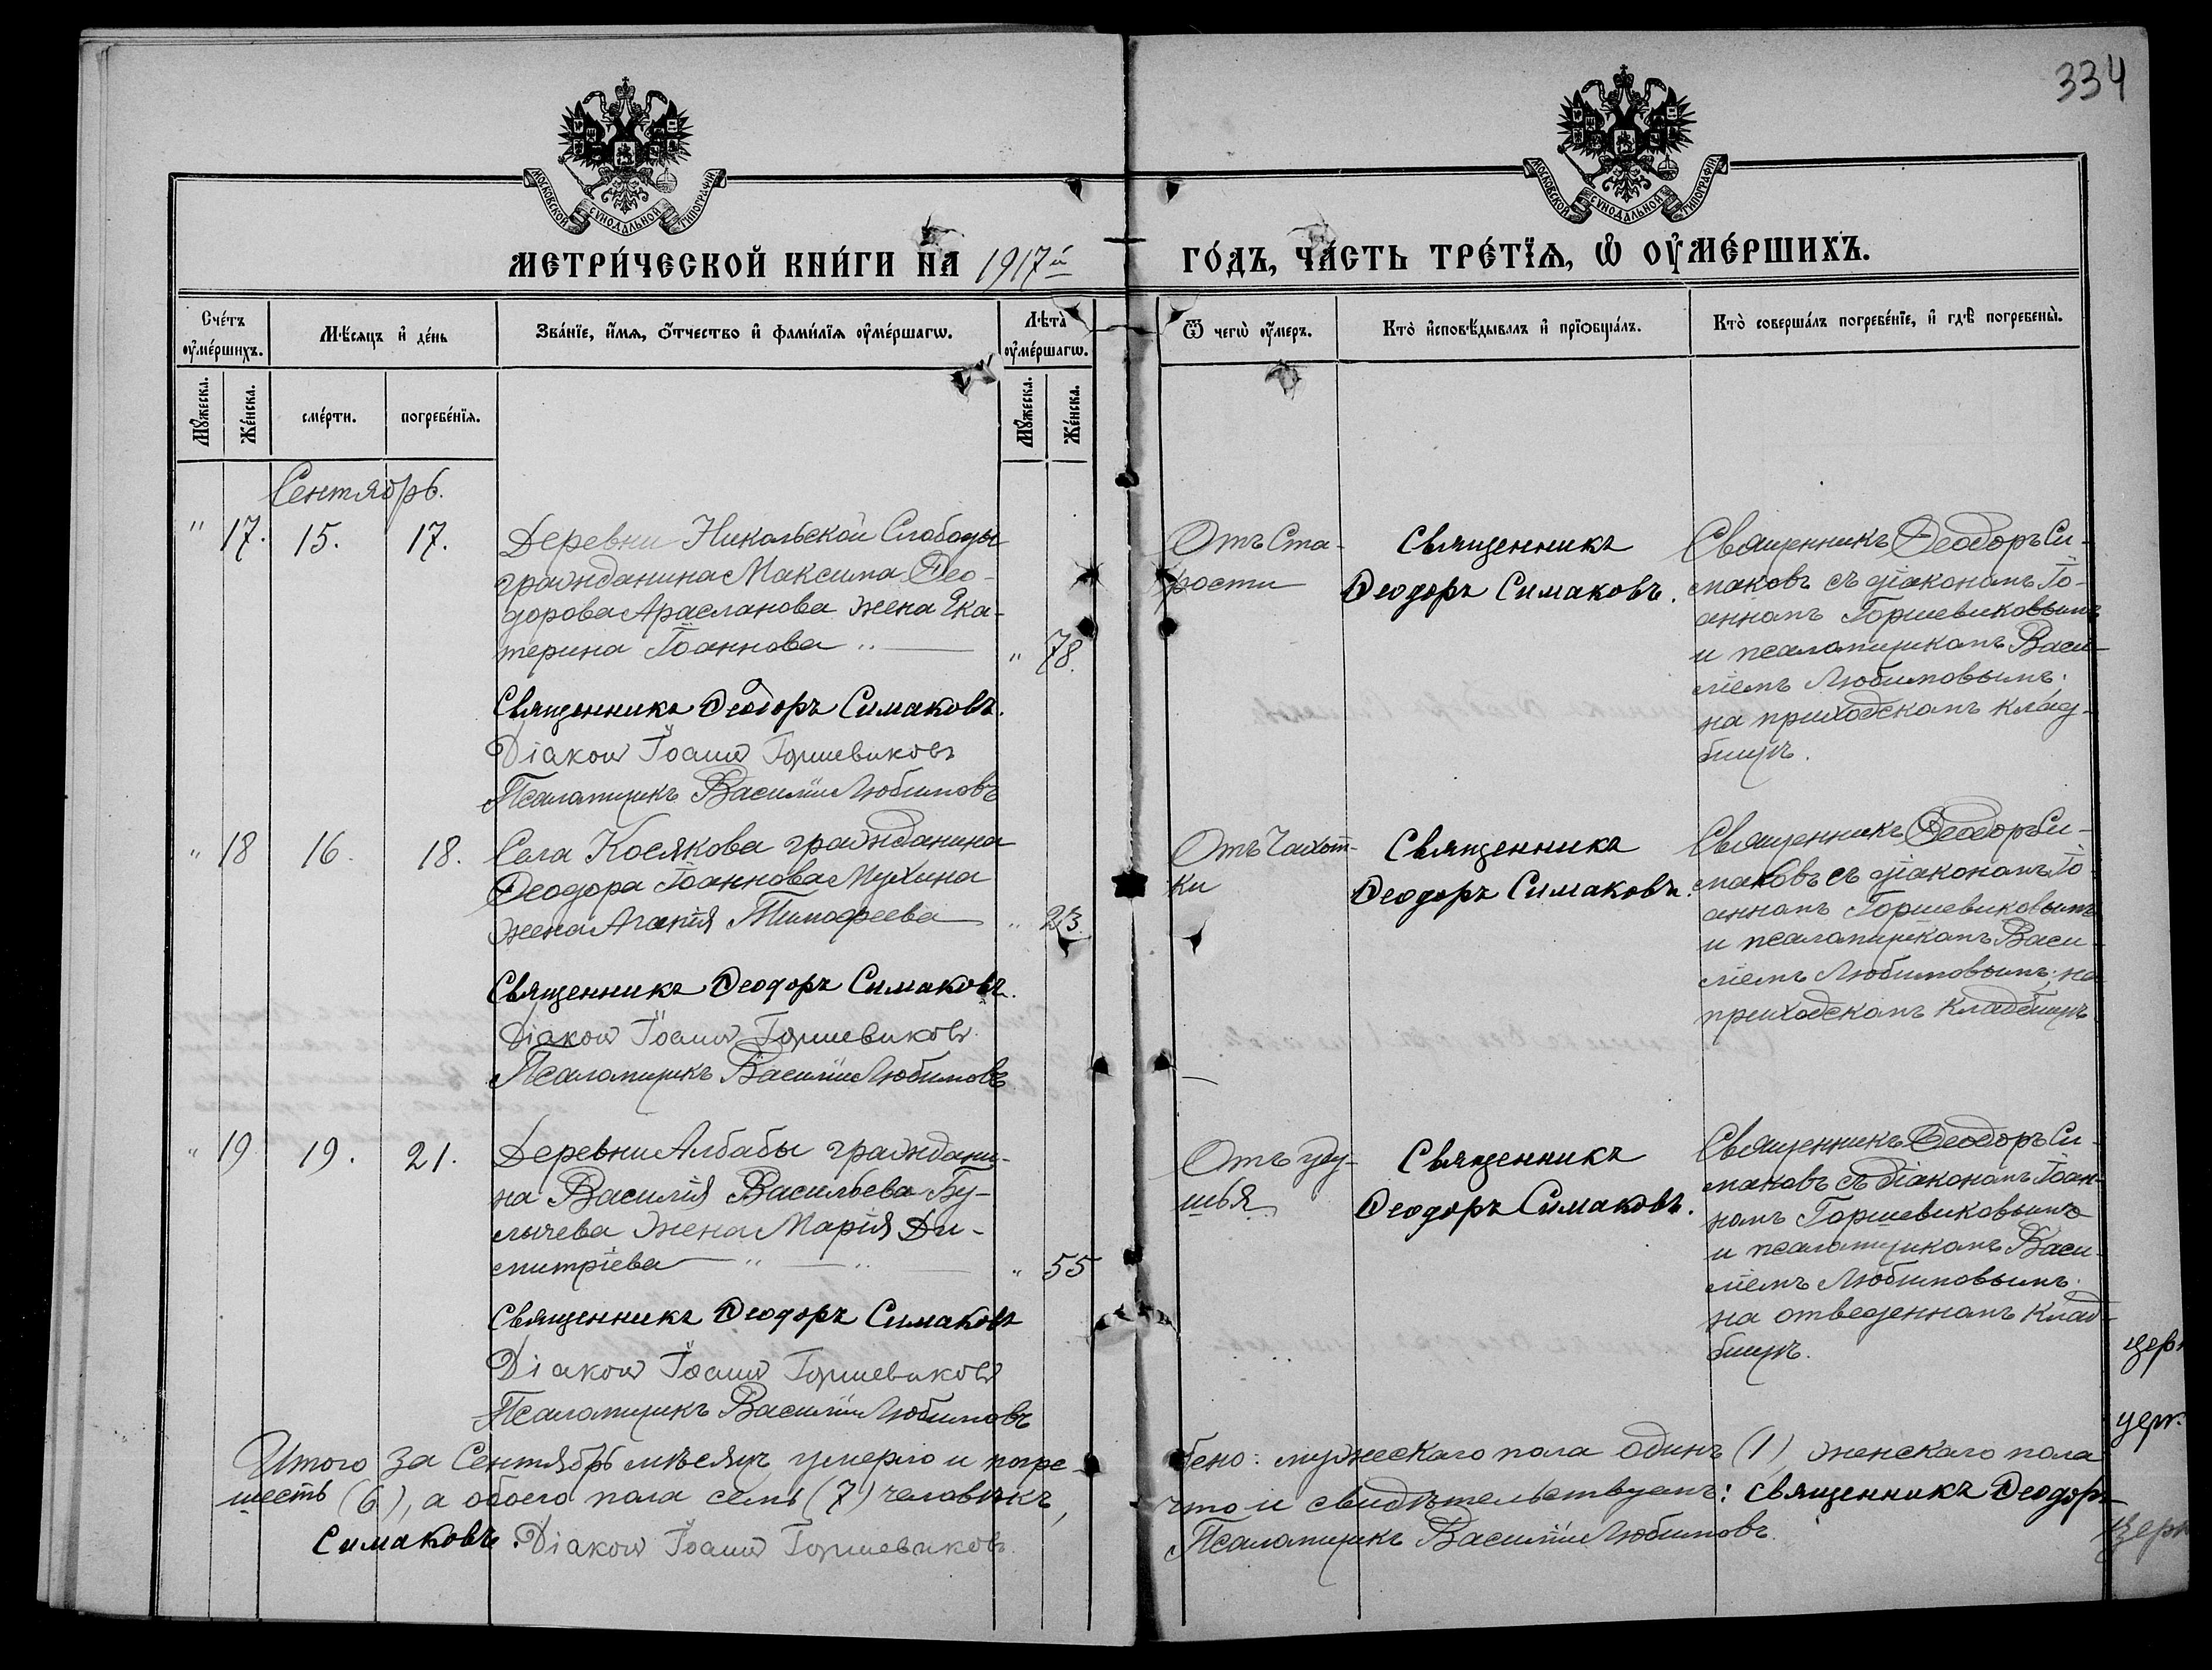 334
МОСКОВСКОЙ СѴНОДАЛЬНОЙ ТИПОГРАФІИ
МОСКОВСКОЙ СѴНОДАЛЬНОЙ ТИПОГРАФІИ
МЕТРИ́ЧЕСКОЙ КНИ́ГИ НА 1917й
ГО́ДЪ, ЧА́СТЬ ТРЕ́ТЇѦ, Ѡ҆ ОУ҆МЕ́РШИХЪ.
Сче́тъ оу҆ме́ршихъ.
Мѣ́сяцъ и҆ де́нь
Зва́нїе, и҆́мѧ, ѻ҆́тчество и҆ фами́лїѧ оу҆ме́ршагѡ.
Лѣ́та оу҆ме́ршагѡ.
Ѿ чегѡ̀ оу҆́меръ.
Кто̀ и҆сповѣ́дывалъ и҆ прїѡбща́лъ.
Кто̀ соверша́лъ погребе́нїе, и҆ гдѣ̀ погребены̀.
Мꙋ́жеска.
Же́нска.
сме́рти.
погребе́нїѧ.
Мꙋ́жеска.
Же́нска.
Сентябрь.
" 17. 15. 17.
Деревни Никольской Слободы
гражданина Максима Ѳео-
дорова Арасланова жена Ека-
терина Іоаннова
" 78.
Священникъ Ѳеодоръ Симаковъ.
Діаконъ Іоаннъ Горшевиковъ
Псаломщикъ Василій Любимовъ
Отъ Ста-
рости
Священникъ
Ѳеодоръ Симаковъ.
Священникъ Ѳеодоръ Си-
маковъ съ діакономъ Іо-
анномъ Горшевиковымъ
и псаломщикомъ Васи-
ліемъ Любимовымъ.
на приходскомъ клад-
бищѣ.
" 18 16. 18.
Села Косякова гражданина
Ѳеодора Іоаннова Мухина
жена Агапія Тимофеева
" 23.
Священникъ Ѳеодоръ Симаковъ.
Діаконъ Іоаннъ Горшевиковъ.
Псаломщикъ Василій Любимовъ
Отъ Чахот-
ки
Священникъ
Ѳеодоръ Симаковъ.
Священникъ Ѳеодоръ Си-
маковъ съ діакономъ Іо-
анномъ Горшевиковымъ
и псаломщикомъ Васи-
ліемъ Любимовымъ; на
приходскомъ кладбищѣ
" 19 19. 21.
Деревни Албабы граждани-
на Василія Васильева Бу-
лычева жена Марія Ди-
митріева
" 55
Священникъ Ѳеодоръ Симаковъ
Діаконъ Іоаннъ Горшевиковъ
Псаломщикъ Василій Любимовъ
Отъ уду-
шья
Священникъ
Ѳеодоръ Симаковъ.
Священникъ Ѳеодоръ Си-
маковъ съ діакономъ Іоан-
номъ Горшевиковымъ
и псаломщикомъ Васи-
ліемъ Любимовымъ.
на отведенномъ клад-
бищѣ.
Итого за Сентябрь мѣсяцъ умерло и погре-
бено: мужескаго пола одинъ (1), женскаго пола
шесть (6), а обоего пола семь (7) человѣкъ,
что и свидѣтельствуемъ: священникъ Ѳеодоръ
Симаковъ. Діаконъ Іоаннъ Горшевиковъ.
Псаломщикъ Василій Любимовъ.